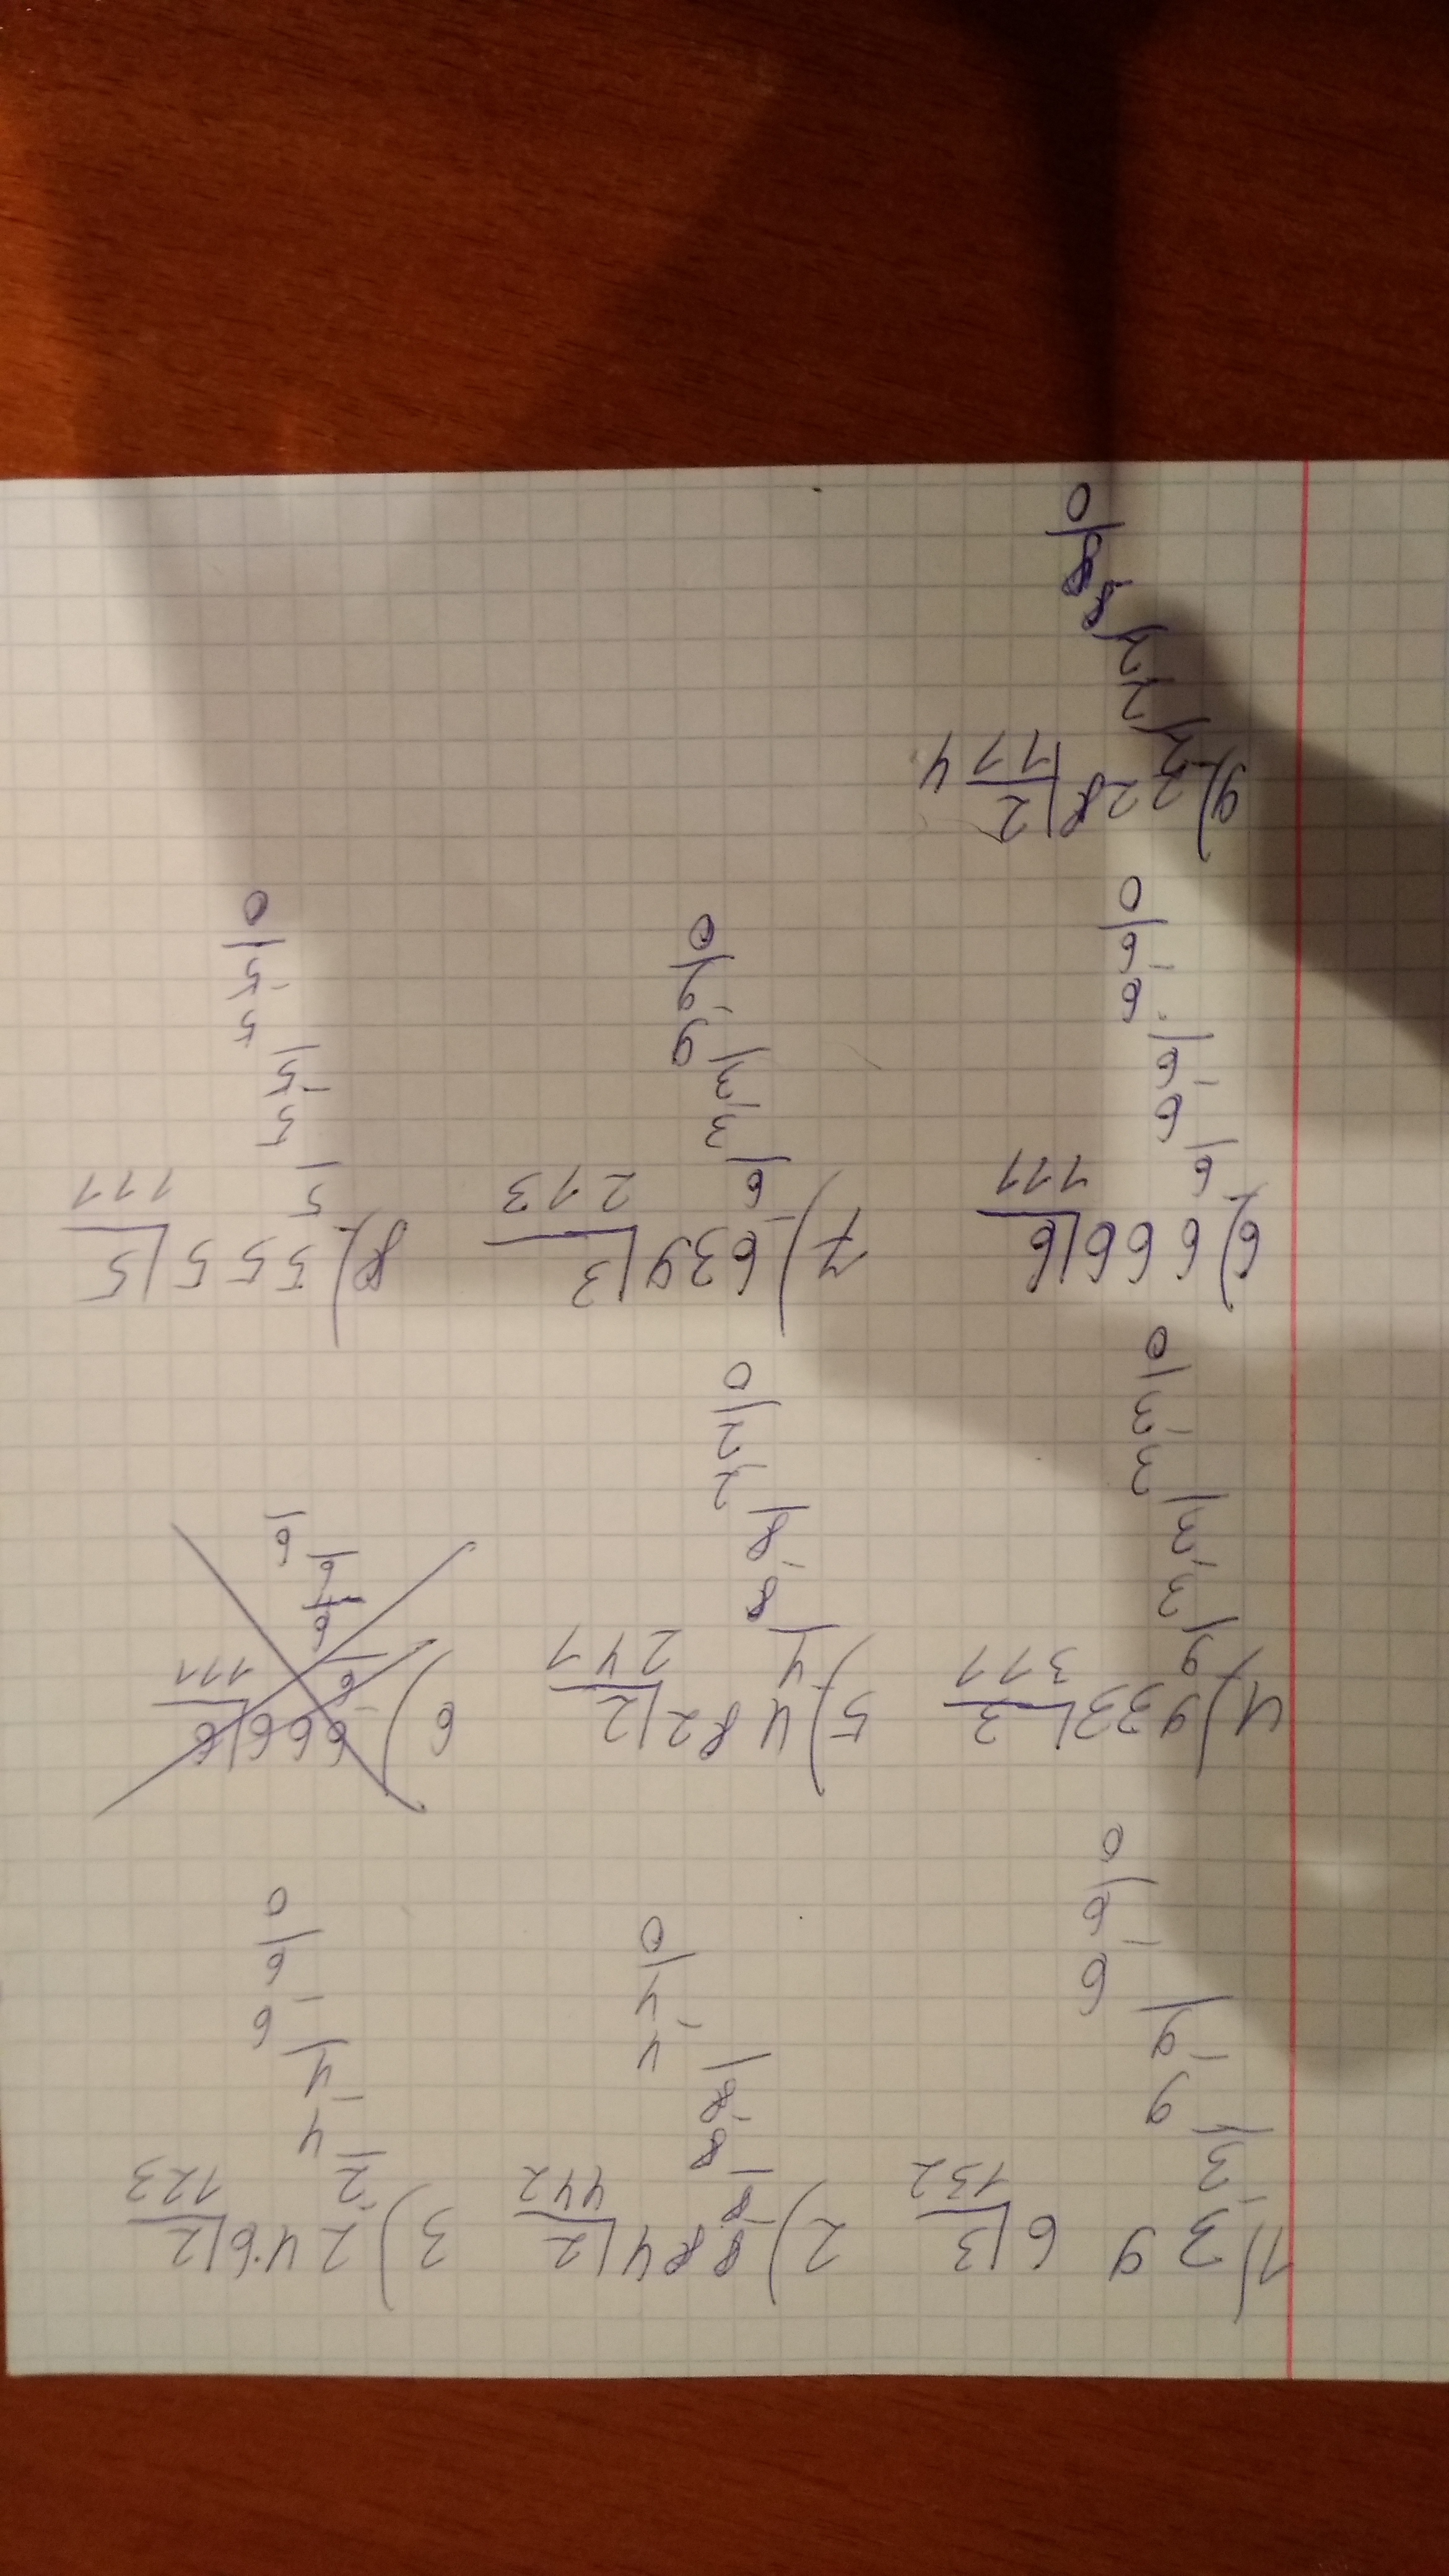 1) 3 9 6 | 3   2) 884 | 2   3) 246 | 2
- 3   132   - 8   442   - 2   123
9   8   4
- 9   - 8   - 4
6   4   6
- 6   - 4   - 6
0   0   0
4) 933 | 3   5) 482 | 2   6) 666 | 6
- 9   311   - 4   241   - 6   111
3   8   6
- 3   - 8   6
3   2   6
- 3   - 2
0   0
6) 666 | 6   7) 639 | 3   8) 555 | 5
- 6   111   - 6   213   - 5   111
6   3   5
- 6   - 3   - 5
6   9   5
- 6   - 9   - 5
0   0   0
9) 228 | 2
- 2   114
2
2
8
- 8
0